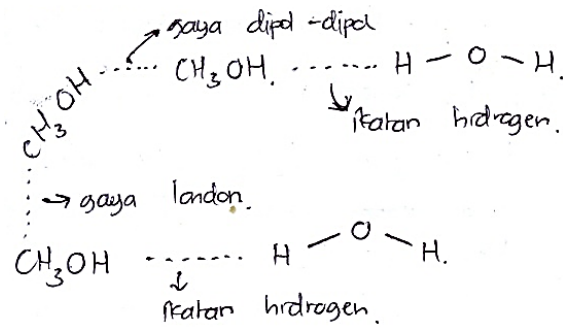 gaya dipol-dipol
CH3OH ...... CH3OH. ........ H - O - H.
ikatan hidrogen.
gaya london.
CH3OH ....... H - O - H.
ikatan hidrogen.